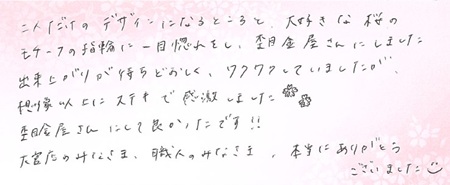 二人だけの デザインになるところと、大好きな桜の
モチーフの指輪に一目惚れをし、杢目金屋さんにしました
出来上がりが待ちどおしく、ワクワクしていましたが、
想像以上にステキで感激しました
杢目金屋さんにして良かったです!!
大宮店のみなさま、職人のみなさま、本当にありがとう
ございました